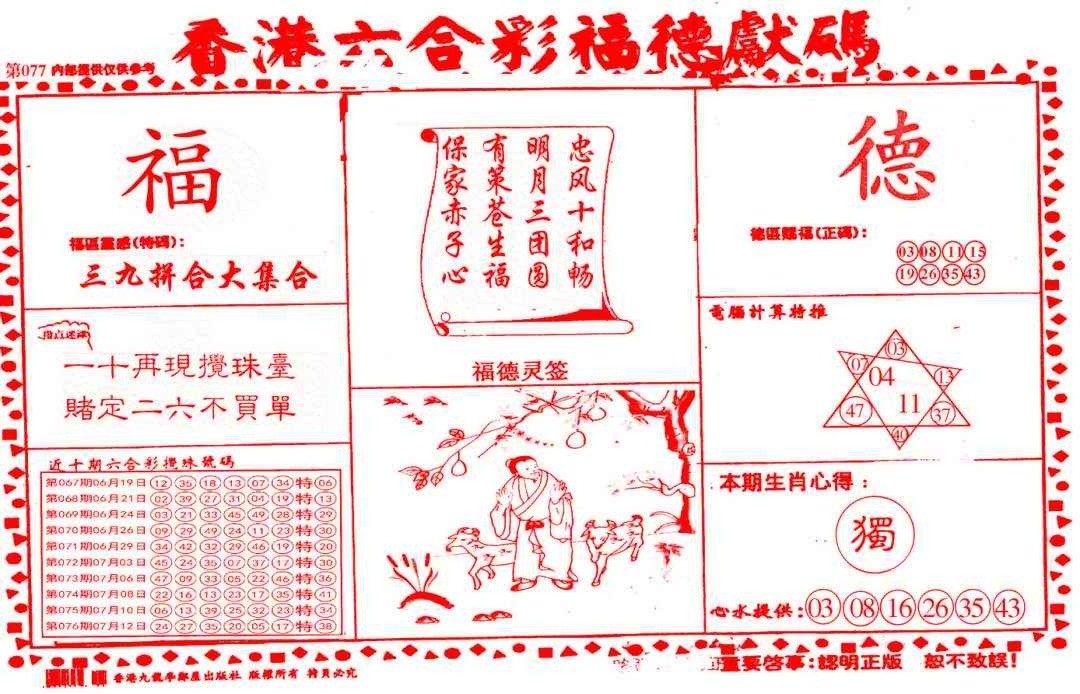 香港六合彩福德獻碼
第077 内部提供仅供参考
福
福區靈感(特碼):
三九拼合大集合
一十再現攪珠臺
賭定二六不買單
近十期六合彩攪珠號碼
第067期06月19日 12 35 18 13 07 34 特 06
第068期06月21日 02 39 27 31 04 19 特 13
第069期06月24日 03 21 33 45 49 28 特 29
第070期06月26日 09 29 49 24 11 23 特 30
第071期06月29日 34 42 32 29 46 19 特 20
第072期07月03日 45 24 35 07 37 17 特 30
第073期07月06日 47 09 33 05 22 46 特 36
第074期07月08日 22 16 13 23 17 35 特 41
第075期07月10日 06 13 39 25 32 23 特 34
第076期07月12日 24 27 35 20 05 17 特 38
忠风十和畅
明月三团圆
有策苍生福
保家赤子心
福德灵签
德
德區賜福(正碼):
03 08 11 15
19 26 35 43
電腦計算特推
03
07 04 13
47 11 37
40
本期生肖心得:
獨
心水提供:03 08 16 26 35 43
香港九龍 出版社 版權所有
重要啓事:認明正版 恕不致誤!